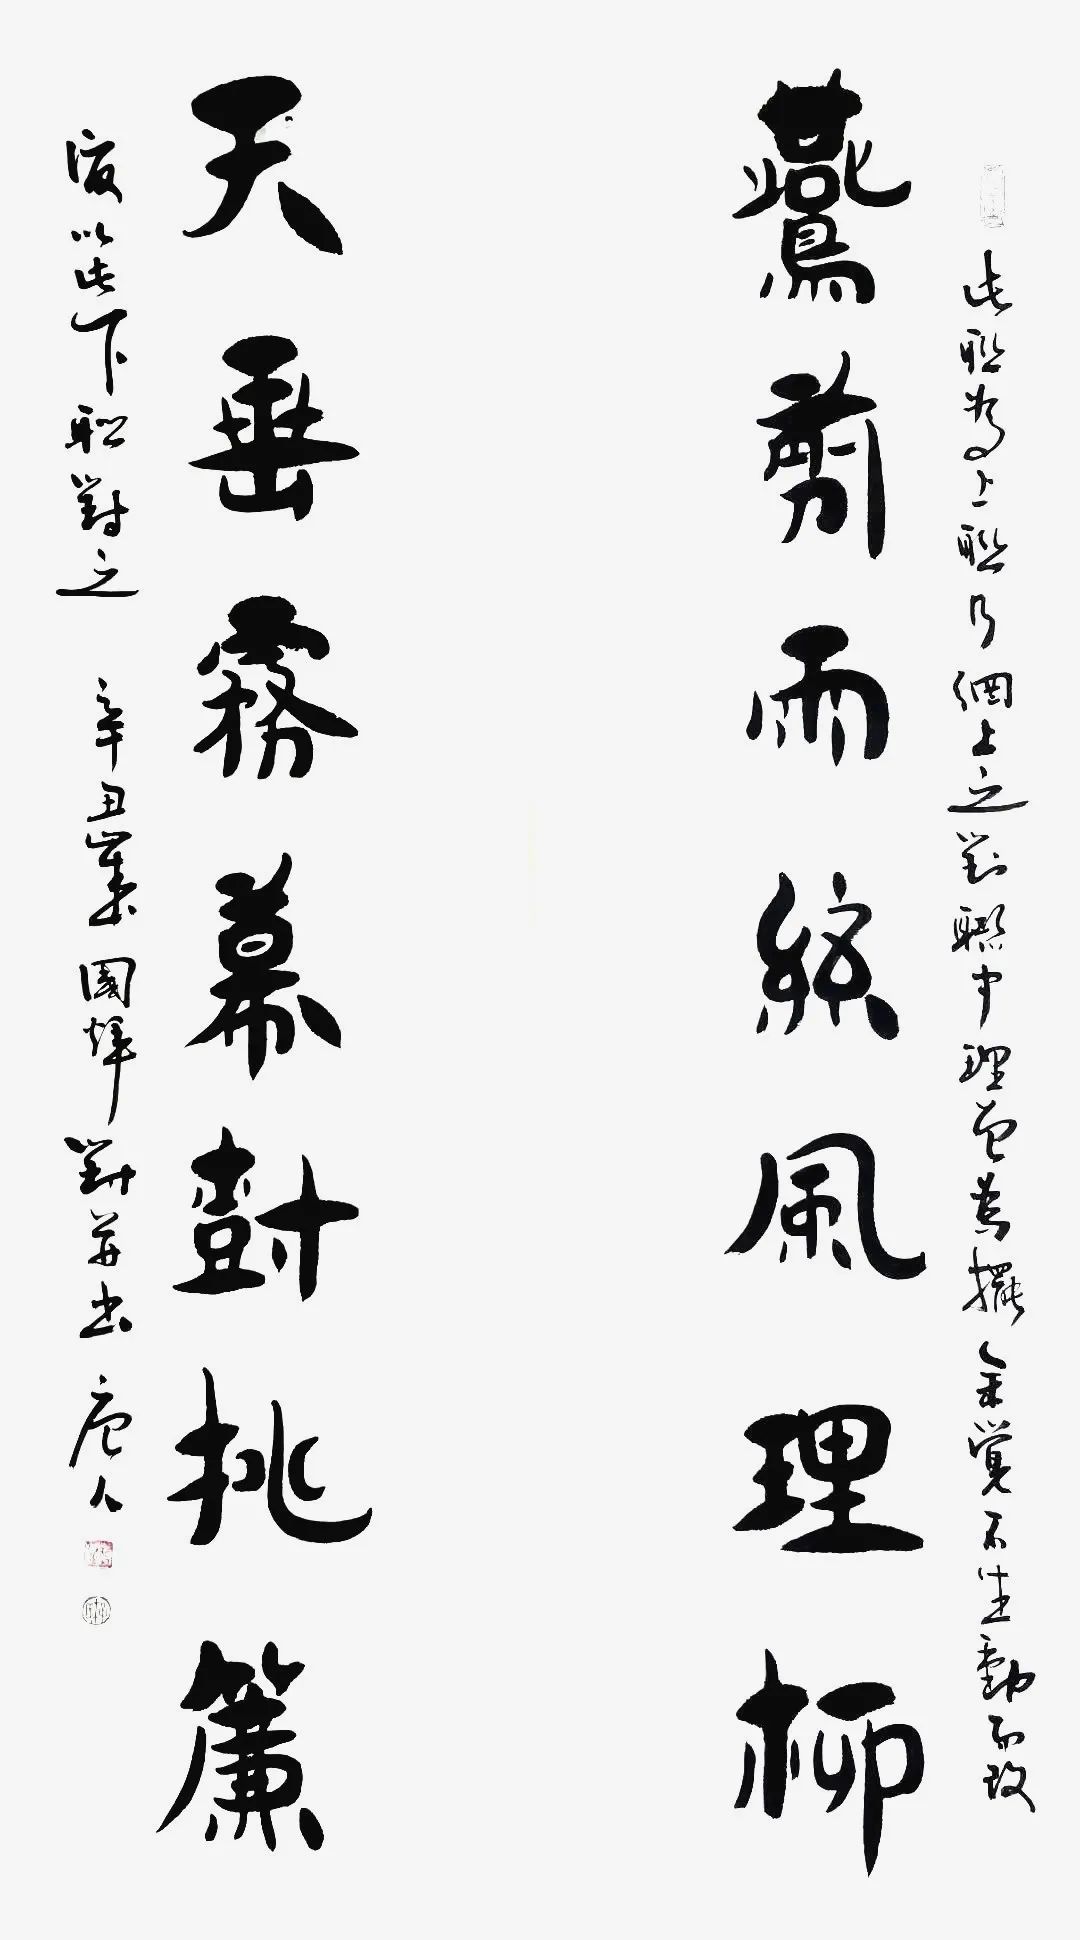 此聯為上聯乃網上之對聯中理原為擺余覺不生動而改
鷰剪雨絲風理柳
天垂霧幕樹挑簾
後以此下聯對之 辛丑歲國輝對并书 唐人